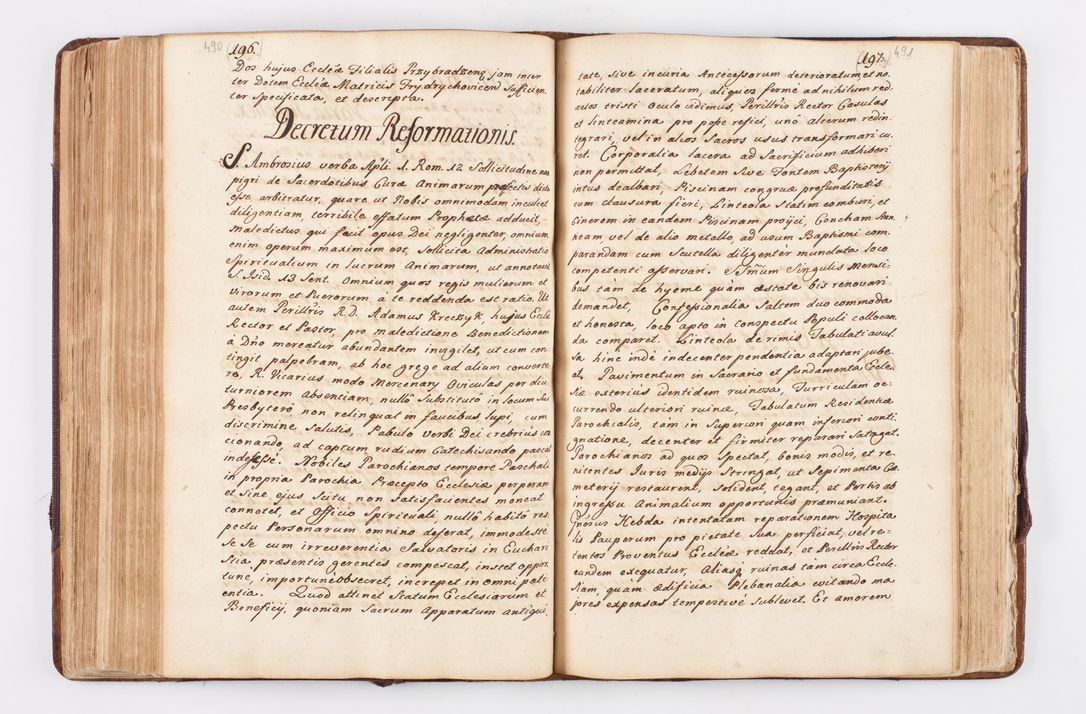 490
196.
Dos hujus Ecclæ Filialis Przybradzenę jam inter
ter Dotem Ecclæ Matricis Frydrychovicen Sufficien
ter Specificata, et descripta.
Decretum Reformationis
S Ambrosius verba Apli. 1. Rom. 12 Sollicitudine non
pigri de Sacerdotibus Curæ Animarum præfectis dicta
esse arbitratur, quare ut Nobis omnimodam inculcet
diligentiam, terribile effatum Prophetæ adducit,
maledictus qui facit opus Dei negligenter, omnium
enim operum maximum est, Sollicita Administratio
Spiritualium in lucrum Animarum, ut annotavit
S. Isid. 13 Sent. Omnium quos regis mulierum et
virorum et Puerorum à te reddenda est ratio. Ut
autem Perillris R. D. Adamus Kreczyk, hujus Ecclæ
Rector et Pastor, pro maledictione Benedictionem
à Dño mereatur abundantem invigilet, ut cum con
tingit palpebram, ab hoc grege ad alium converte
re, R. Vicarius modo Mercenarij Oviculas per diu
turniorem Absentiam, nullô Substitutô in locum Sui
Presbyterô non relinquat in faucibus lupi, cum
discrimine Salutis, Pabulo verbi Dei crebrius con
cionando, ad captum rudium Catechisando pascat
indefesse. Nobiles Parochianos tempore Paschali
in propria Parochia Præcepto Ecclesiæ perperam
et Sine ejus Scitu non Satisfacientes moneat
connotet, et Officio Spirituali, nullô habitô res
pectu Personarum omnino deferat, immodestè
Se Se cum irreverentia Salvatoris in Euchari
Stia præsentis gerentes compescat, instet oppor
tune, importune obsecret, increpet in omni pati
entia. Quod attinet Statum Ecclesiarum et
Beneficij, quoniam Sacrum Apparatum antiqui
197. 491
tate, Sive incuria Antecessorum deterioratum et no
tabiliter laceratum, aliquos fermè ad nihilum red
actos tristi oculo vidimus, Perillris Rector Casulas
et linteamina pro posse refici, unô alterum redin
tegrari, vel in alios Sacros usus transformari cu
ret. Corporalia lacera ad Sacrificium adhiberi
non permittat, Lebetem Sive Fontem Baptisterij
intus dealbari, Piscinam congruæ profunditatis
cum clausura fieri, Linteola Statim comburi, et
Cinerem in eandem Piscinam projici, Concham Stan
neam vel de alio metallo, ad usum Baptismi com
parandam cum Scutella diligentèr mundata loco
competenti asservari. SSmum Singulis Mensi
bus tàm de hyeme quàm æstate bis renovari
demandet, Confessionalia Saltem duo commoda
et honesta, loco apto in conspectu Populi collocan
da comparet. Linteola de rimis Tabulati avul
sa hinc inde indecenter pendentia adaptari jube
at, Pavimentum in Sacrario et fundamenta Eccle
siæ exterius identidem ruinosa, Turriculam oc
currendo ulteriori ruinæ, Tabulatum Residentiæ
Parochialis, tàm in Superiori quam inferiori conti
gnatione, decenter et firmiter reparari Satagat.
Parochianos ad quos Spectat, bonis modis, et re
nitentes Juris medijs Stringat, ut Sepimenta Cœ
meterij restaurent, Solident, tegant, et Portis ab
ingressu Animalium opportunis præmuniant.
Gnosus Hebda intentatam reparationem Hospita
lis Pauperum pro pietate Sua perficiat, vel re
tentos Proventus Ecclæ reddat, et Perillris Rector
eandem exequatur, Aliasq ruinas tàm circa Eccle
siam, quàm Ædificia Plebanalia evitando ma
jores expensas tempestivè Sublevet. Et amorem